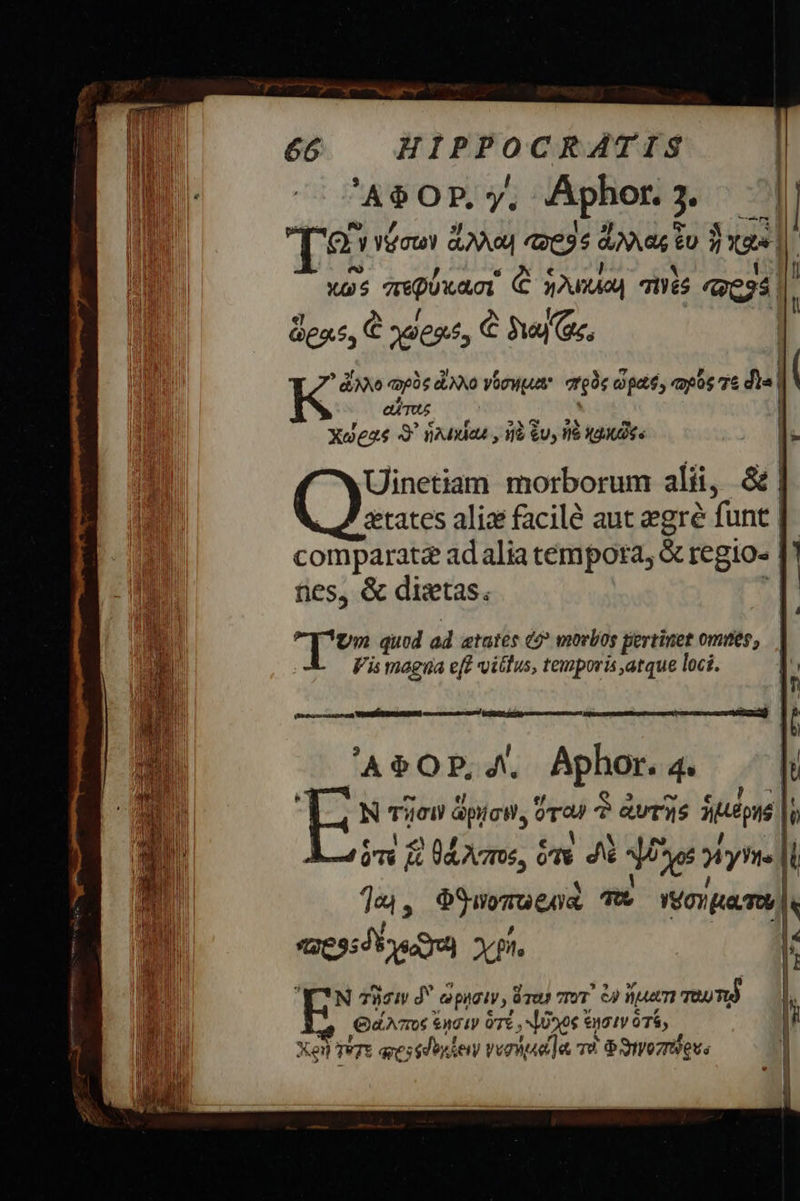 66 HIPPOCRATIS
ἈΦΟΡ. γ. Aphor. 3.
ΤΩν νέσων ἄλλαι πρὸς ἄλλας εὖ ἢ κα-
κῶς πεφύκασι· καὶ ἡλικίαι τινὲς πρὸς
ὥρας, καὶ χώρας, καὶ διαίτας.
Κ' ἄλλο πρὸς ἄλλο νόσημα· πρὸς ὥρας, πρός τε διαί
αίτας
Χώρας θ' ἡλικίαι, ἠὲ εὖ, ἠὲ κακῶς.
QUinetiam morborum alii, &
ætates aliæ facilè aut ægrè ſunt
comparatæ ad alia tempora, & regio-
nes, & diætas.
TUm quod ad ætates & morbos pertinet omnes,
Vis magna eſt victus, temporis, atque loci.
ἈΦΟΡ. δ. Aphor. 4.
ἘΝ τῇσιν ὥρῃσιν, ὅταν τῆς αὐτῆς ἡμέρης
ὁτὲ μὲν θάλπος, ὁτὲ δὲ ψῦχος γίγνη-
ται, φθινοπωρινὰ τὰ νεσήματα
προσδέχεσθαι χρή.
ἘΝ τῇσιν δ' ὥρῃσιν, ὅταν ποτ' ἐν ἤματι ταυτῷ
Θάλπος ἔῃσιν ὁτέ, ψῦχος ἔῃσιν ὁτέ,
Χρὴ τότε προσδοκέειν νοσήματα τὰ φθινοπωρα.